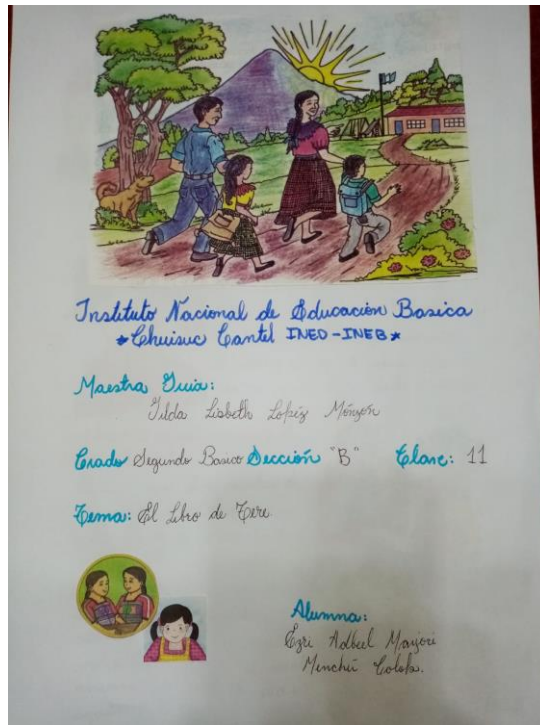 Instituto Nacional de Educación Basica
*Chuisuc Cantel INED-INEB*
Maestra Guia:
Gilda Lisbeth Lopéz Mónzon
Grado Segundo Basico Sección "B" Clave: 11
Tema: El Libro de Tere
Alumna:
Ezri Adbeel Mayori
Menchú Colop.